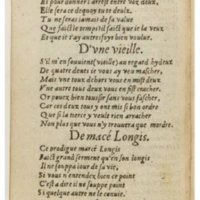 Et pour donner l'arrest entre vos deux,
Elle sera ce dequoy tu te deulx,
Tu ne seras iamais de sa value
Que faict le temps tel faict que ie la veux
Et que ie t'ay autresfoys bien voulue.
D'vne vieille.
S'il m'en souuient (vieille) au regard hydeux
De quatre dents ie vous ay veu mascher,
Mais vne toux dehors vous en mist deux
Vne autre toux deux vous en fist cracher.
Or pouez bien toussir sans vous fascher,
Car ces deux toux y ont mis si bon ordre
Que si la tierce y veult rien arracher
Non plus que vous n'y trouuera que mordre.
De macé Longis.
Ce prodigue macé Longis
Faict grand serment qu'en son logis
Il ne souppa iour de sa vie,
Si vous n'entendez bien ce point
C'est a dire il ne souppe point
Si quelque autre ne le conuie.